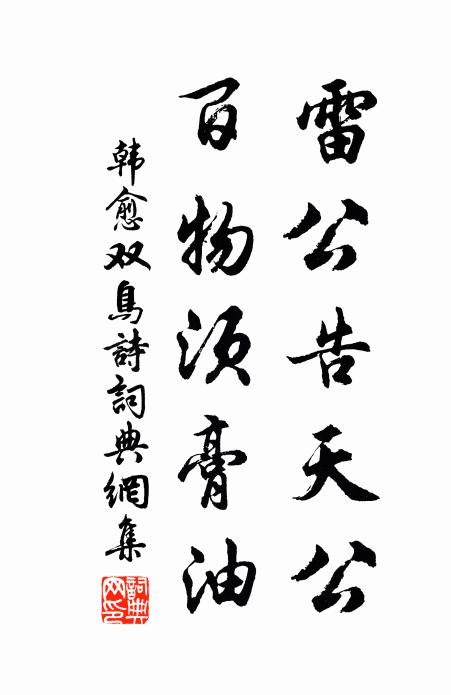 雷公告天公
百物须膏油
韩愈双鸟詩詞典網集
詞典網印